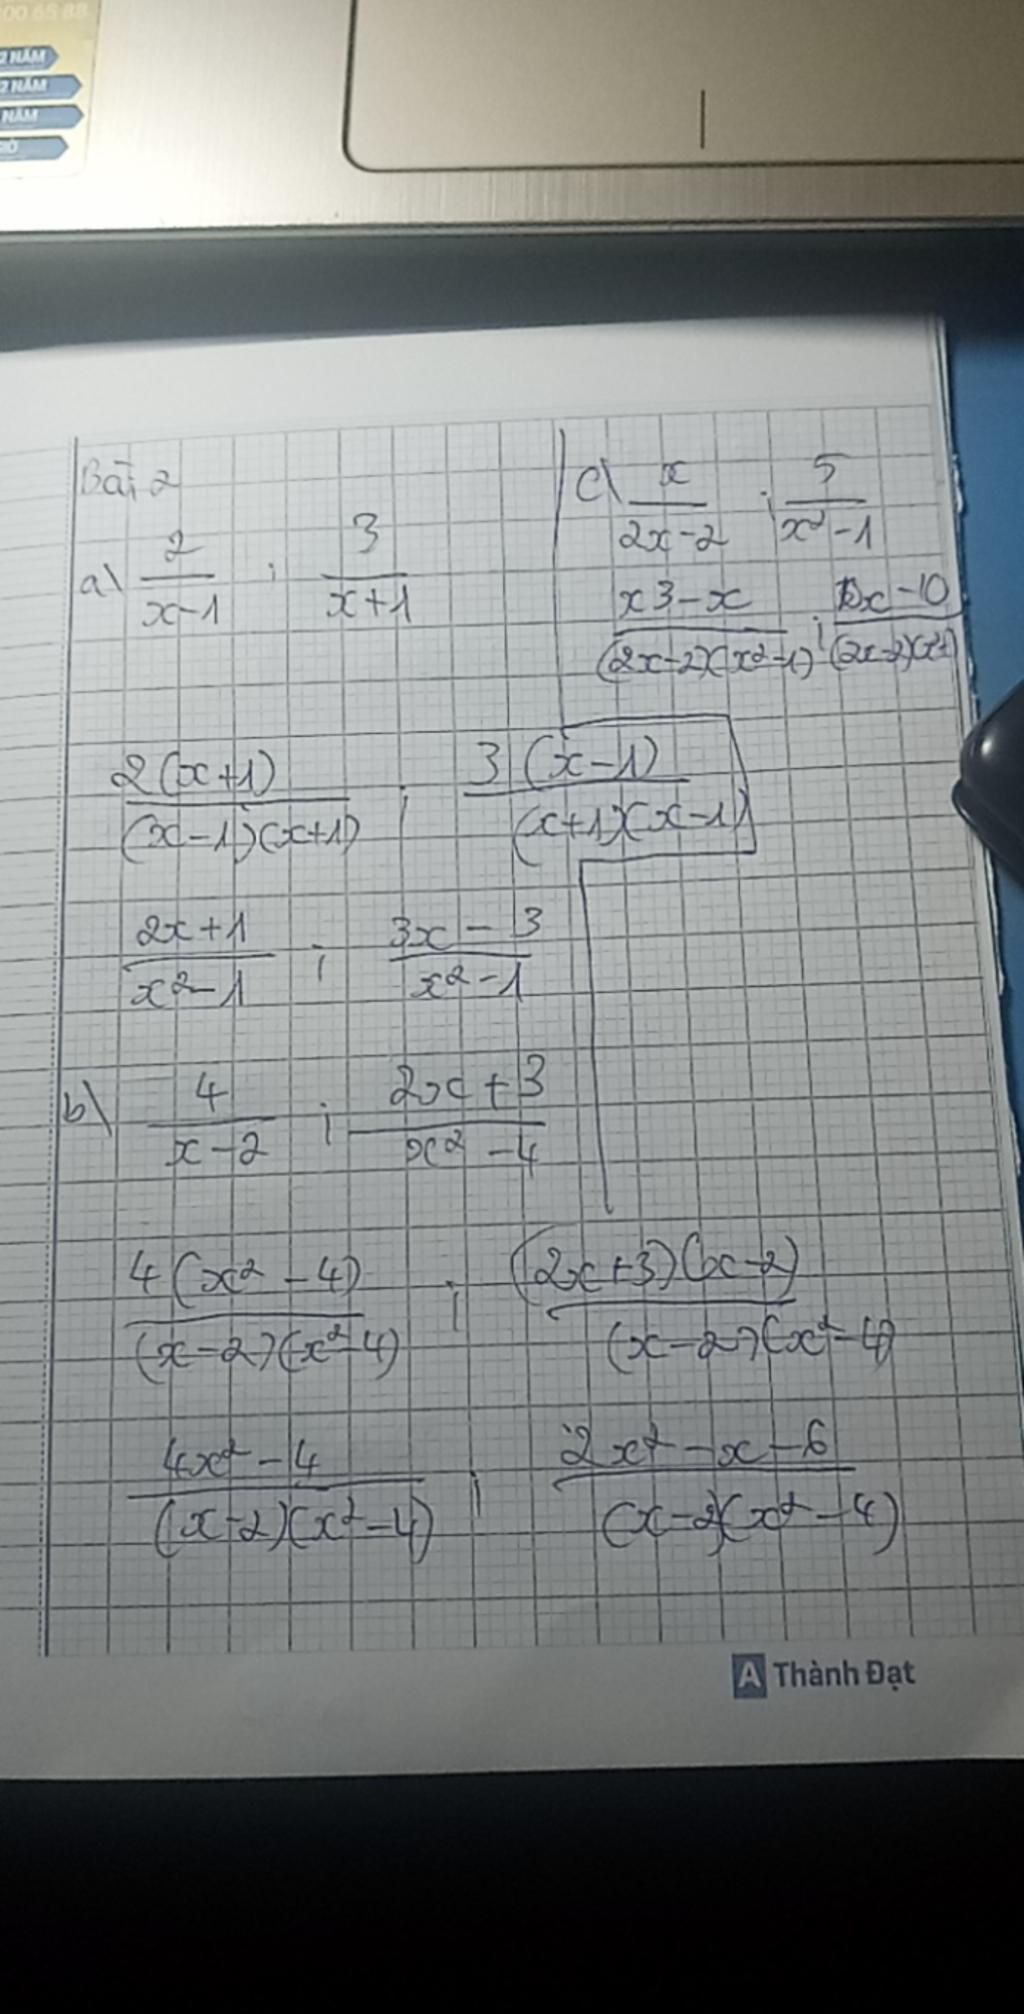 00 65 88
2 NĂM
2 NĂM
NĂM
Bài 2
a) 2/(x-1) ; 3/(x+1)
2(x+1)/((x-1)(x+1)) ; 3(x-1)/((x+1)(x-1))
(2x+1)/(x²-1) ; (3x-3)/(x²-1)
b) 4/(x-2) ; (2x+3)/(x²-4)
4(x²-4)/((x-2)(x²-4)) ; (2x+3)(x-2)/((x-2)(x²-4))
(4x²-4)/((x-2)(x²-4)) ; (2x²-x-6)/((x-2)(x²-4))
c) x/(2x-2) ; 5/(x²-1)
(x3-x)/((2x-2)(x²-1)) ; (10x-10)/((2x-2)(x²-1))
A Thành Đạt